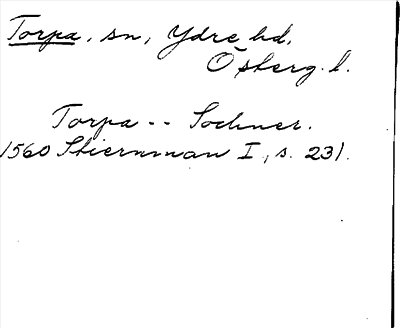 Torpa, sn, Ydre hd,
Östberg. l.
Torpa -- Sochner.
1560 Stiernman I, s. 231.